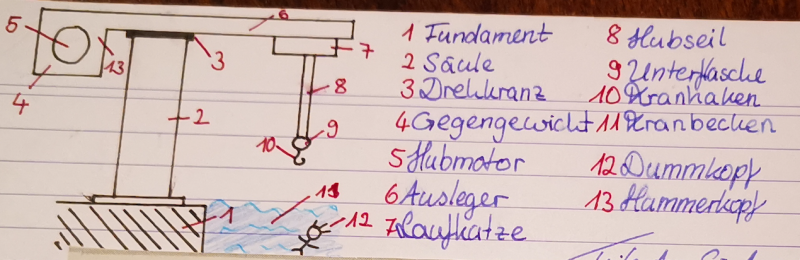 1 Fundament
2 Säule
3 Drehkranz
4 Gegengewicht
5 Hubmotor
6 Ausleger
7 Laufkatze
8 Hubseil
9 Unterflasche
10 Kranhaken
11 Kranbecken
12 Dummkopf
13 Hammerkopf
5
6
7
3
13
4
8
2
9
10
11
1
12